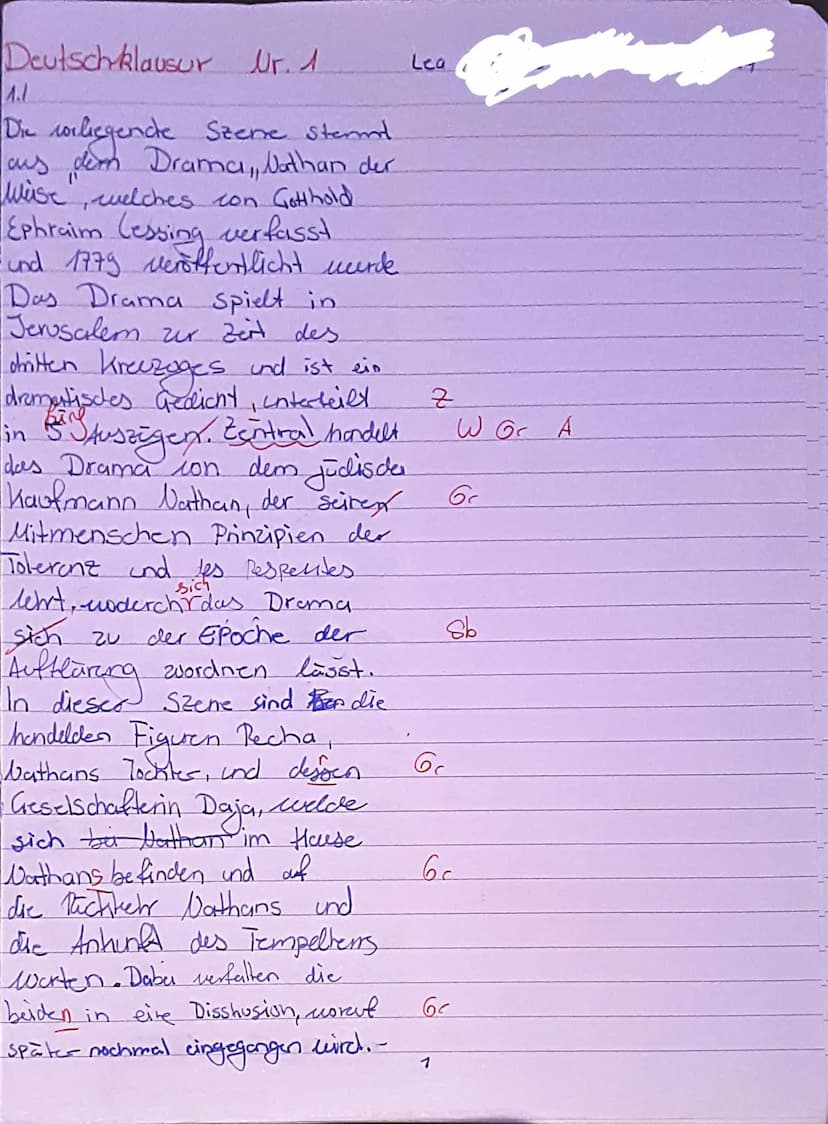 Deutschklausur Nr. 1 Lea
1.1
Die vorliegende Szene stammt
aus dem Drama „Nathan der
Weise", welches von Gotthold
Ephraim Lessing verfasst
und 1779 veröffentlicht wurde
Das Drama spielt in
Jerusalem zur Zeit des
dritten Kreuzoges und ist ein
dramatisches Gedicht, unterteilt Z
in 5 fünf Auszügen. Zentral handelt W Gr A
das Drama von dem jüdische
Kaufmann Nathan, der seinen Gr
Mitmenschen Prinzipien der
Toleranz und des Respektes
lehrt, woderch sich das Drama
sich zu der Epoche der Sb
Aufklärung zuordnen lässt.
In dieser Szene sind die
handelden Figuren Recha,
Nathans Tochter, und dessen Gr
Geselschafterin Daja, welche
sich bei Nathan im Hause
Nathans befinden und auf Gr
die Rückkehr Nathans und
die Ankunft des Tempelherrs
warten. Dabei verfallen die
beiden in eine Disskusion, worauf Gr
später nochmal eingegangen wird.-
1